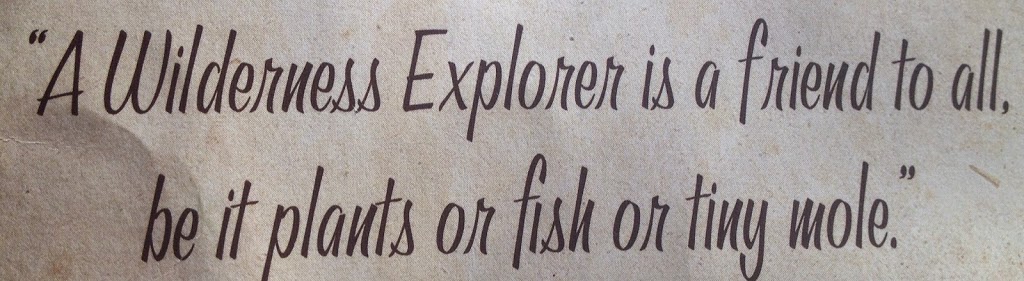 “A Wilderness Explorer is a friend to all,
be it plants or fish or tiny mole.”